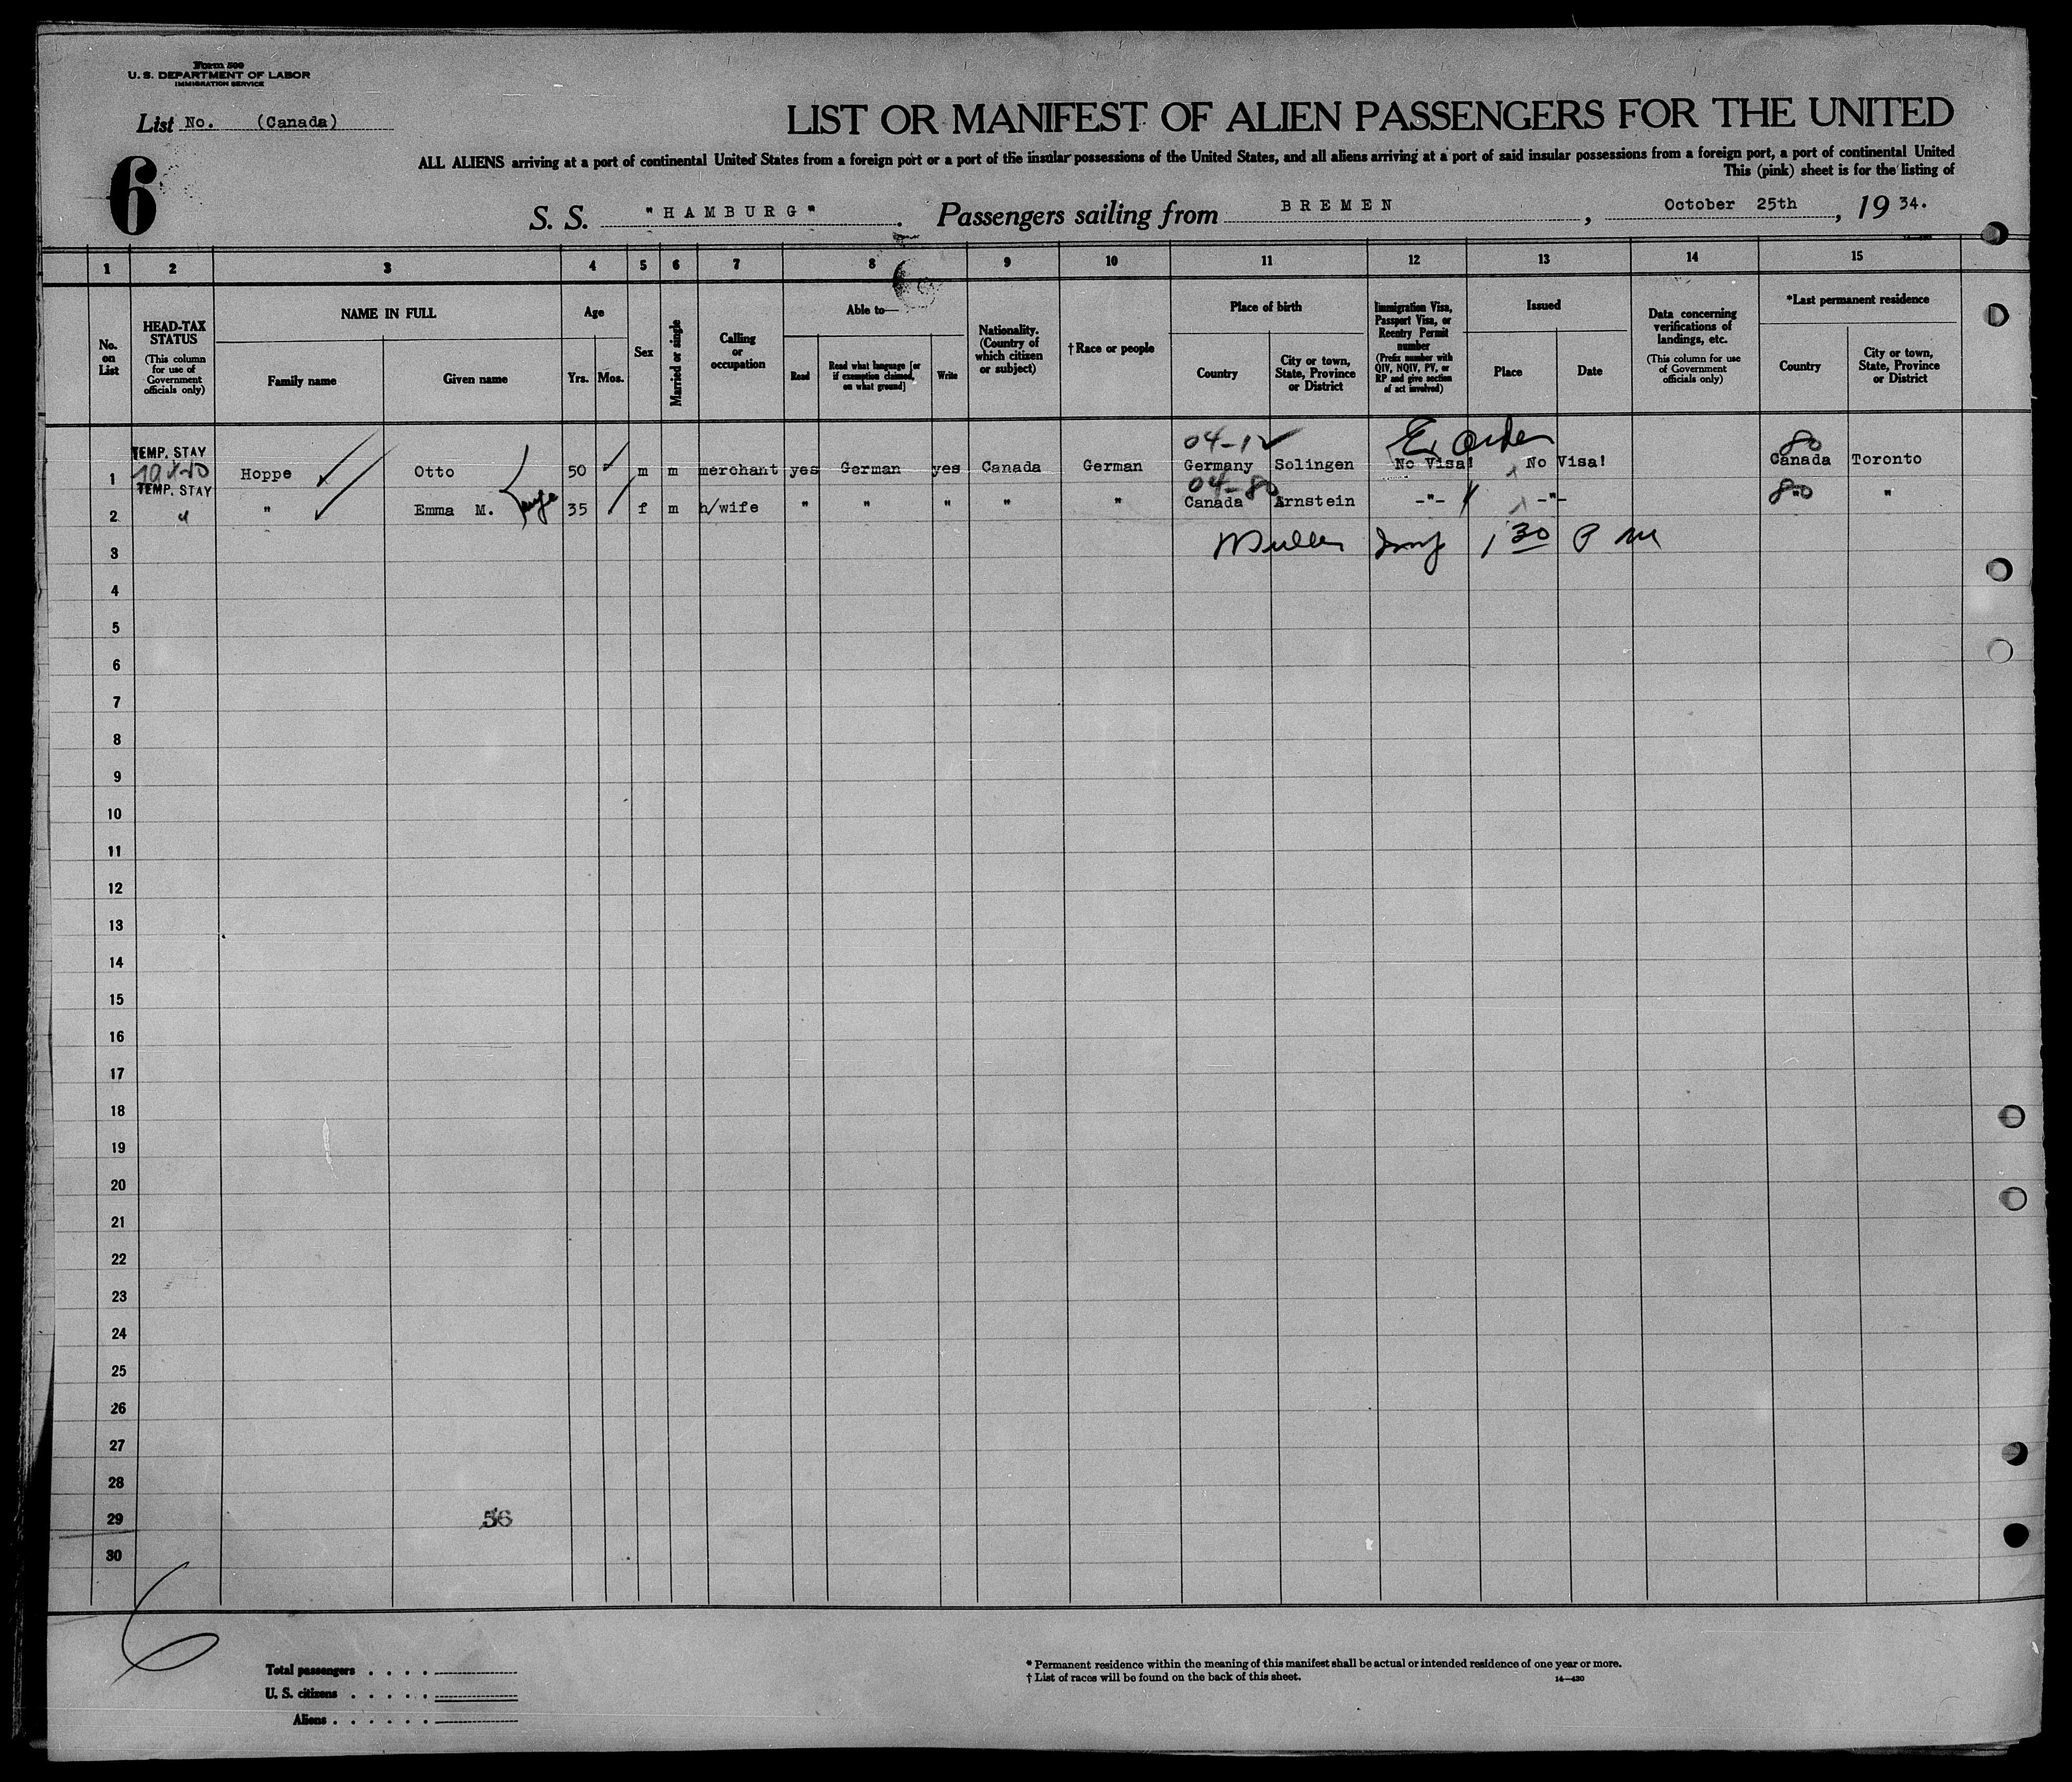 Form 500
U. S. DEPARTMENT OF LABOR
IMMIGRATION SERVICE
List No. (Canada)
LIST OR MANIFEST OF ALIEN PASSENGERS FOR THE UNITED
ALL ALIENS arriving at a port of continental United States from a foreign port or a port of the insular possessions of the United States, and all aliens arriving at a port of said insular possessions from a foreign port, a port of continental United
This (pink) sheet is for the listing of
6
S. S. "HAMBURG". Passengers sailing from BREMEN, October 25th, 19 34.
1 2 3 4 5 6 7 8 9 10 11 12 13 14 15
No. on List
HEAD-TAX STATUS (This column for use of Government officials only)
NAME IN FULL
Family name Given name
Age
Yrs. Mos.
Sex
Married or single
Calling or occupation
Able to—
Read Read what language [or if exemption claimed, on what ground] Write
Nationality. (Country of which citizen or subject)
†Race or people
Place of birth
Country City or town, State, Province or District
Immigration Visa, Passport Visa, or Reentry Permit number (Prefix number with QIV, NQIV, PV, or RP and give section of act involved)
Issued
Place Date
Data concerning verifications of landings, etc. (This column for use of Government officials only)
*Last permanent residence
Country City or town, State, Province or District
TEMP. STAY 04-12 80
1 Hoppe Otto 50 m m merchant yes German yes Canada German Germany Solingen No Visa! No Visa! Canada Toronto
TEMP. STAY 04-80 80
2 " " Emma M. 35 f m h/wife " " " " " Canada Arnstein -"- -"- " "
3 1 30 P M
4
5
6
7
8
9
10
11
12
13
14
15
16
17
18
19
20
21
22
23
24
25
26
27
28
29 56
30
6
Total passengers . . . .
U. S. citizens . . . . .
Aliens . . . . . .
* Permanent residence within the meaning of this manifest shall be actual or intended residence of one year or more.
† List of races will be found on the back of this sheet. 14—430